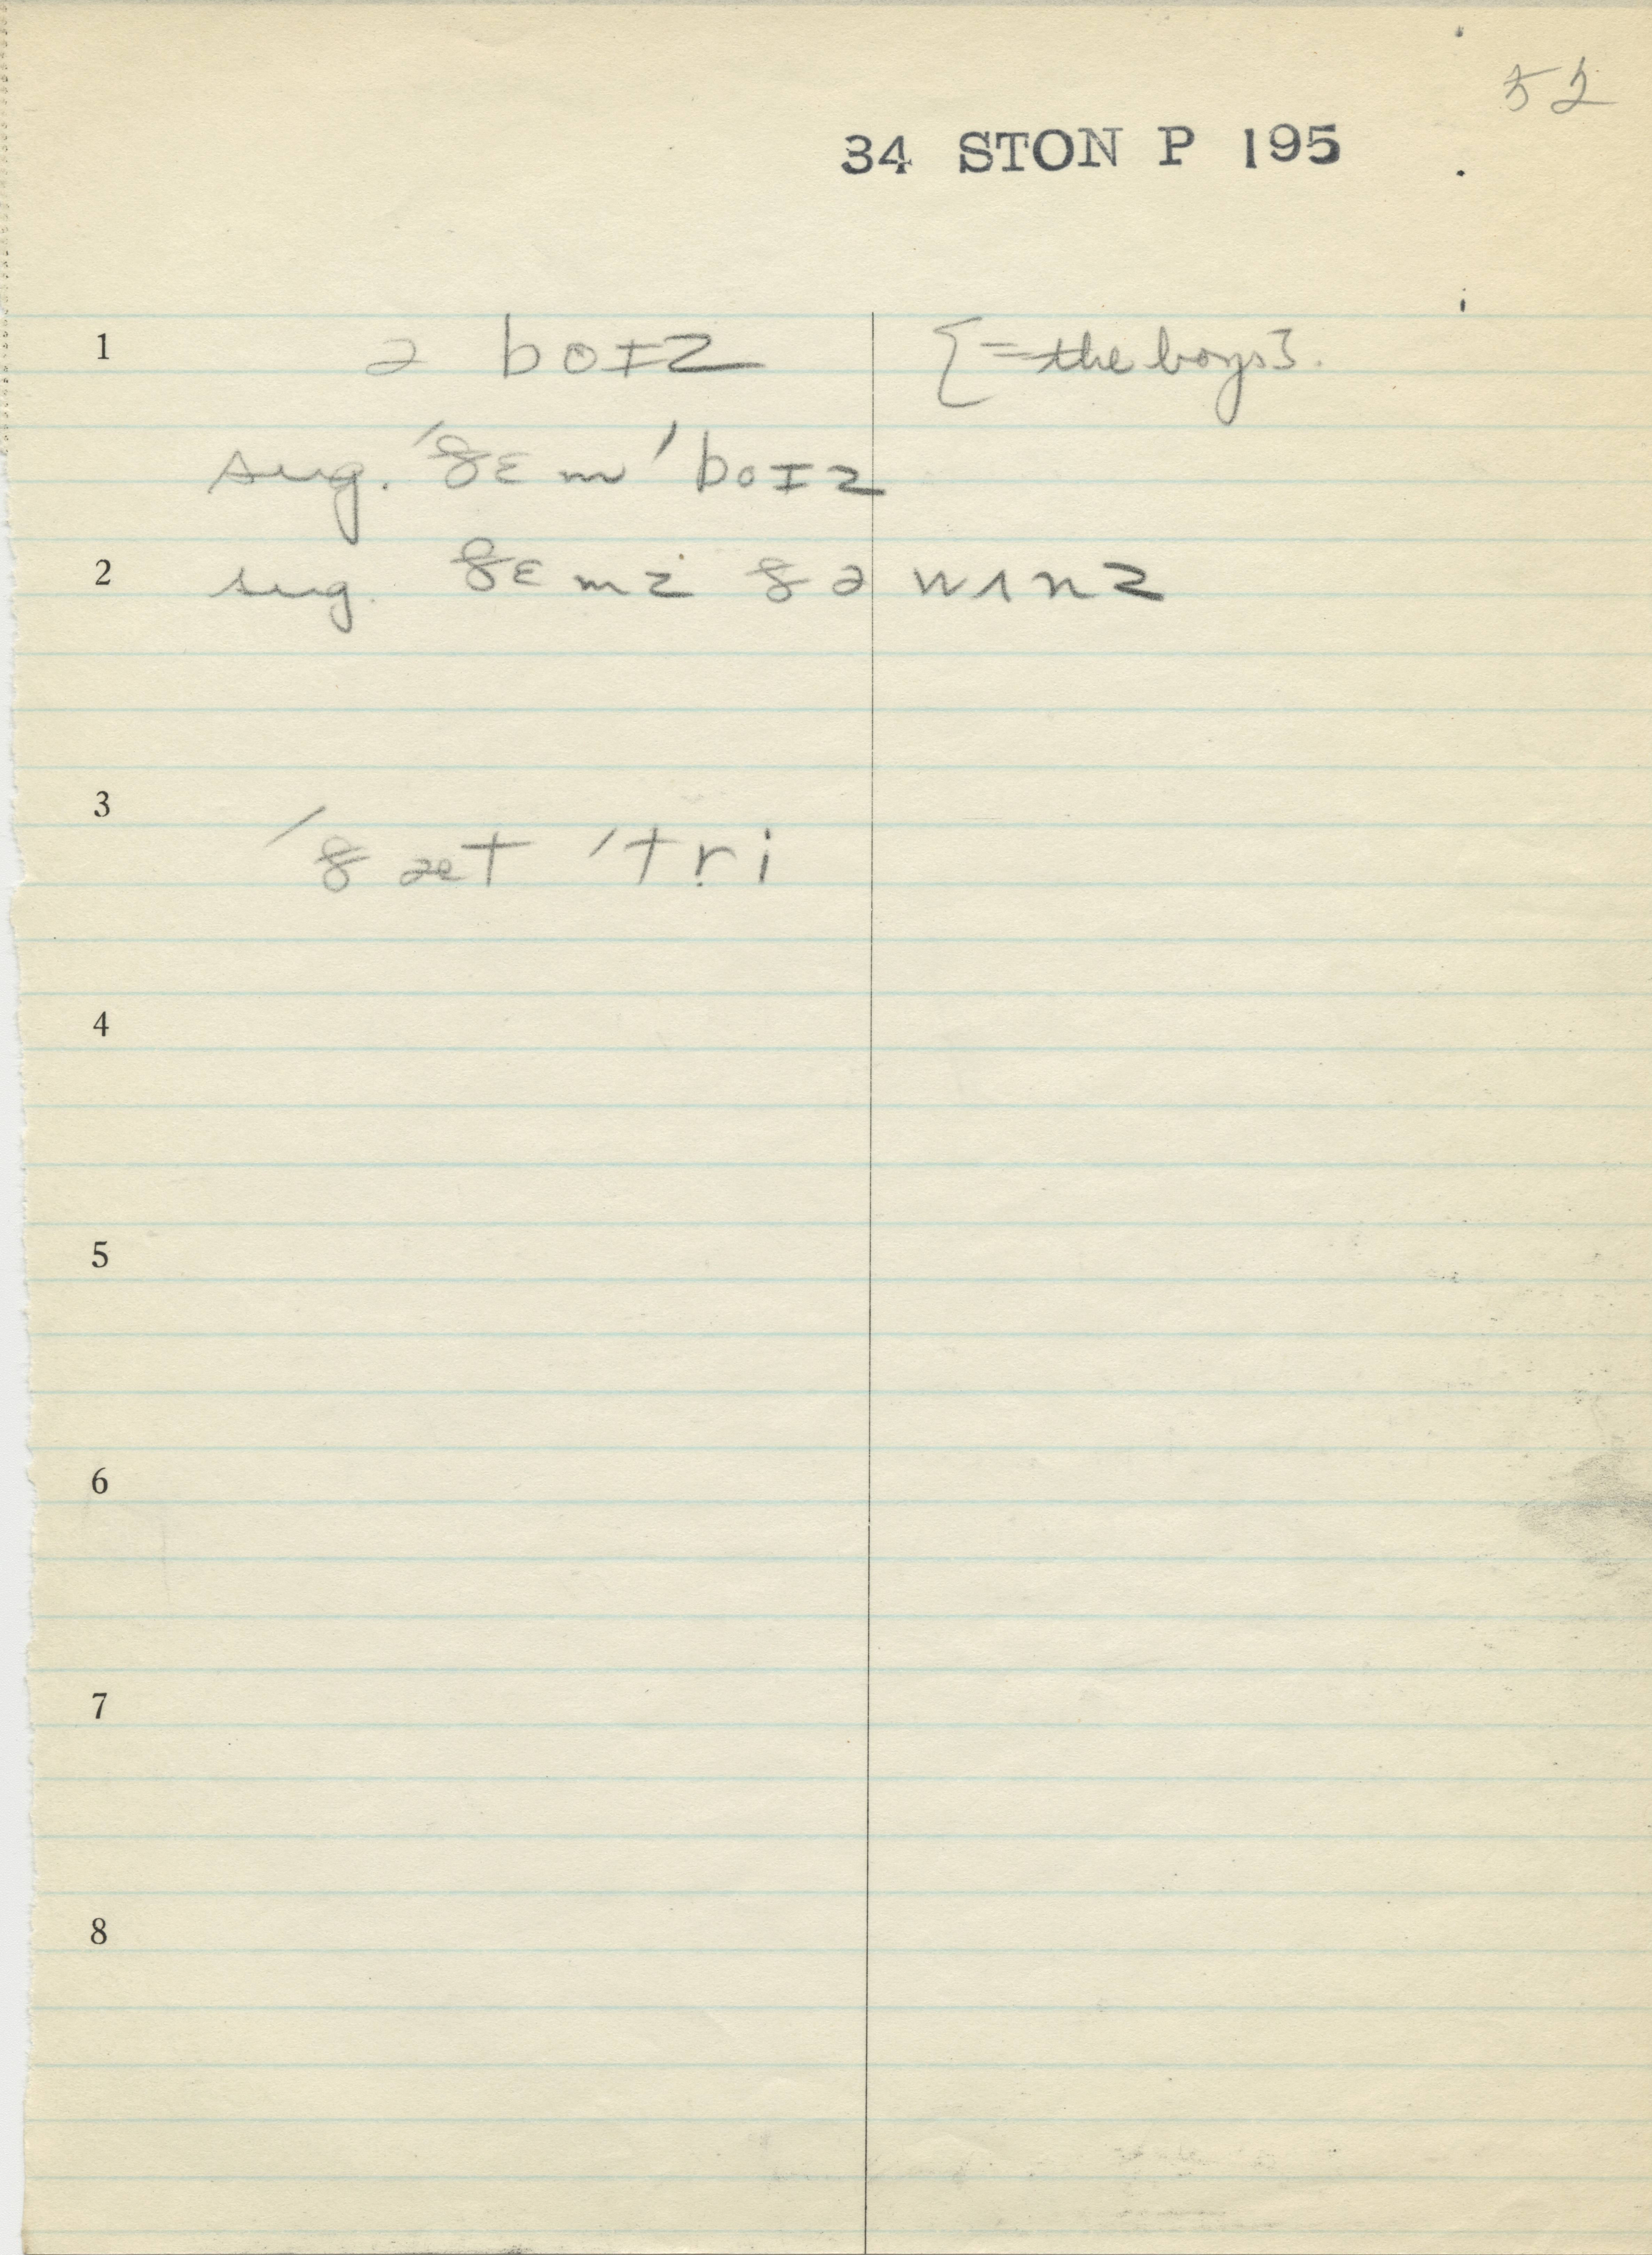 52
34 STON P 195
1 ə boɪz {=the boys}.
sug. ˈðɛm ˈboɪz
2 sug. ðɛmz ðə wʌnz
3 ˈðæt ˈtri
4
5
6
7
8